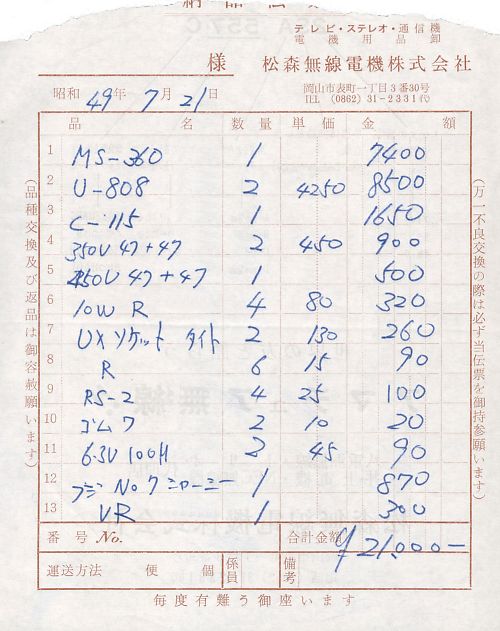 テレビ・ステレオ・通信機
電機用品卸
様 松森無線電機株式会社
岡山市表町一丁目3番30号
TEL (0862) 31-2331代
昭和 49年 7月 21日
品 名 数量 単価 金 額
1 MS-360 1 7400
2 U-808 2 4250 8500
3 C-115 1 1650
4 350V 47+47 2 450 900
5 450V 47+47 1 500
6 10W R 4 80 320
7 UX ソケット タイト 2 130 260
8 R 6 15 90
9 RS-2 4 25 100
10 ゴムワ 2 10 20
11 6.3V 100H 2 45 90
12 フジ No 7 シャーシー 1 870
13 VR 1 300
番号 No. 合計金額 ¥21,000-
運送方法 便 個 係員 備考
毎度有難う御座います
(品種交換及び返品は御容赦願います)
(万一不良交換の際は必ず当伝票を御持参願います)